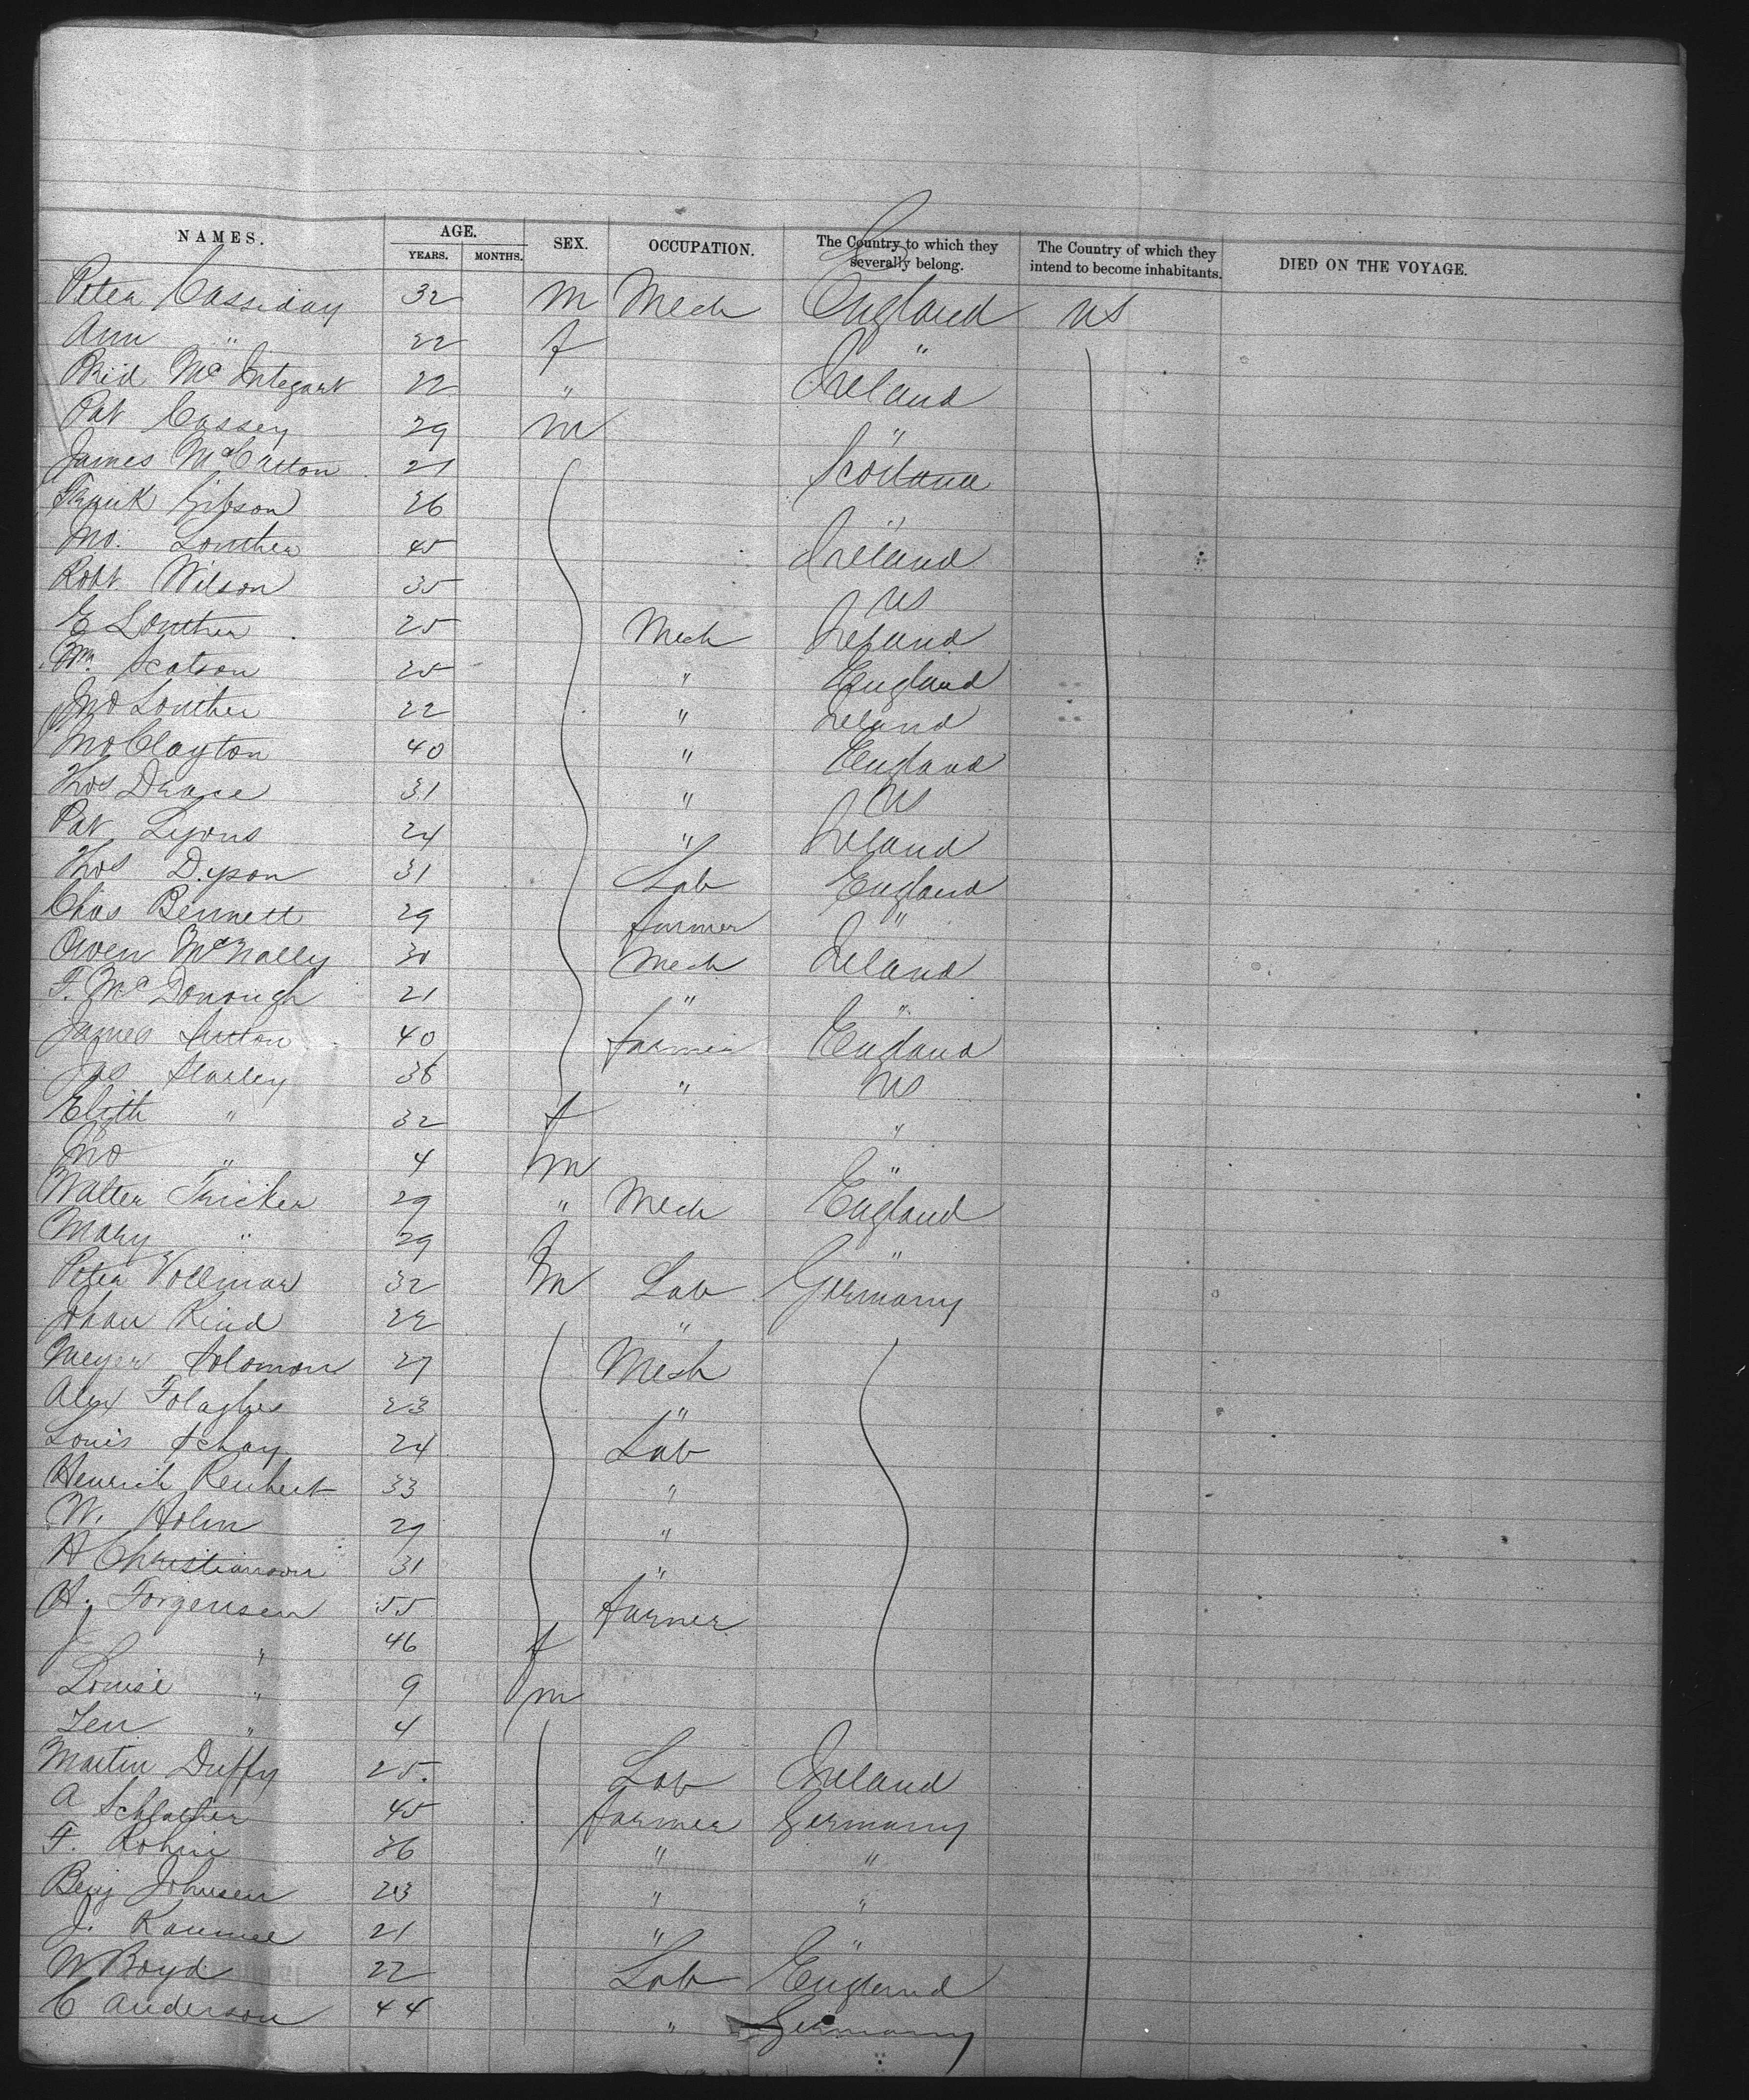 NAMES. AGE. SEX. OCCUPATION. The Country to which they severally belong. The Country of which they intend to become inhabitants. DIED ON THE VOYAGE.
YEARS. MONTHS.
Peter Cassiday 32 m Mech England US
Ann " 22 f "
Brid Mc 22 " Ireland
Pat Cassey 29 m "
James McCutton 21 Scotland
Frank Gibson 26 "
Jno. Lowther 45 Ireland
Robt Wilson 35 US
E Lowther 25 Mech Ireland
Wm. Scotson 25 " England
Jno Lowther 22 " Ireland
Jno Clayton 40 " England
Thos 31 " US
Pat Lyons 24 " Ireland
Thos Dyson 31 Lab England
Chas Bennett 29 farmer "
Owen McNally 30 Mech Ireland
F. McDonough 21 " "
James Sutton 40 farmer England
Jas Starley 36 " US
Elizth " 32 f "
Jno " 4 m "
Walter Tricker 29 " Mech England
Mary " 29 f "
Peter Vollmar 32 m Lab Germany
Johan Kind 22 "
Meyer Solomon 27 Mech
Alex 23 "
Louis Schay 24 Lab
Henrich 33 "
W. Holm 29 "
H Christianson 31 "
H. Jorgensen 55 farmer
J " 46 f
Louise " 9 m
Len " 4
Martin Duffy 25. Lab Ireland
A 45 farmer Germany
F. 36 " "
Benj Johnsen 23 " "
J. 21 " "
W Boyd 22 Lab England
C Anderson 44 " Germany